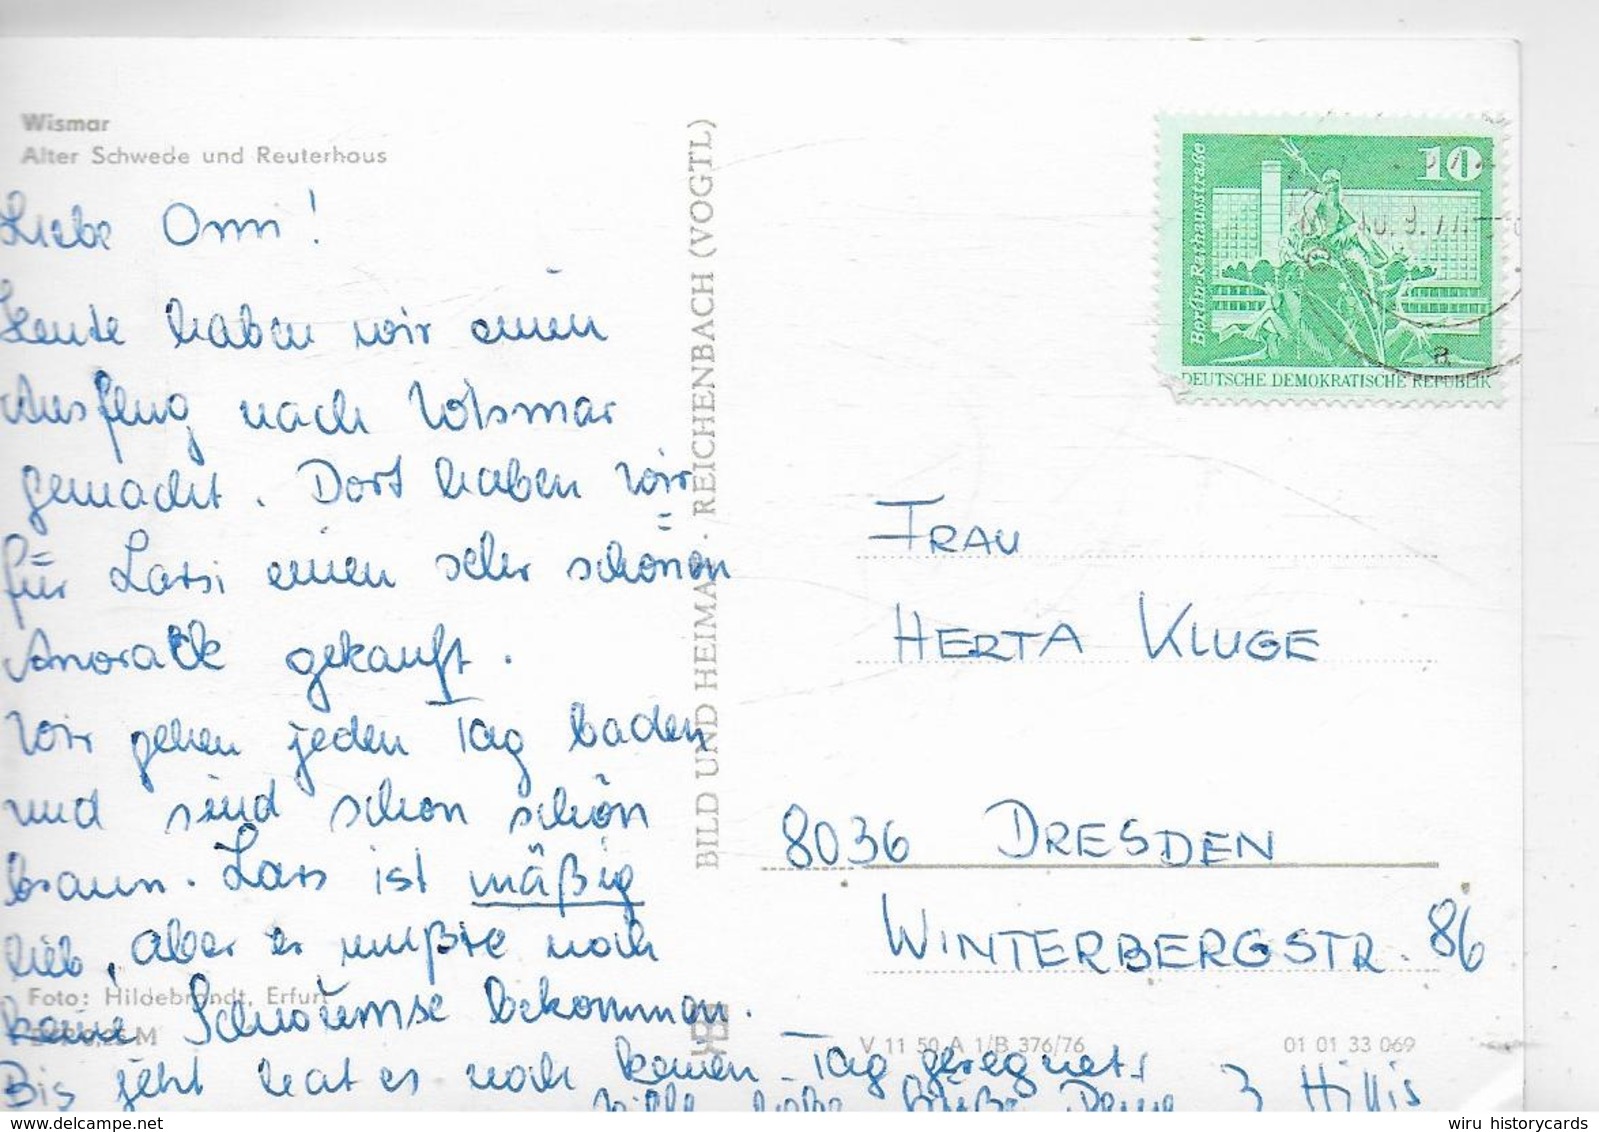 Wismar
Alter Schwede und Reuterhaus
Liebe Omi!
Heute haben wir einen
Ausflug nach Wismar
gemacht. Dort haben wir
für Larsi einen sehr schönen
Anorack gekauft.
Wir gehen jeden Tag baden
und sind schon schön
braun. Lars ist mäßig
lieb, aber er mußte noch
keine Schwümse bekommen.
Bis jetzt hat es noch keinen Tag geregnet.
Viele liebe Grüße Deine 3 Hillis
Foto: Hildebrandt, Erfurt
BILD UND HEIMAT REICHENBACH (VOGTL)
V 11 50 A 1/B 376/76
01 01 33 069
10
Berlin, Rathausstraße
DEUTSCHE DEMOKRATISCHE REPUBLIK
a
FRAU
HERTA KLUGE
8036 DRESDEN
WINTERBERGSTR. 86
wiru historycards